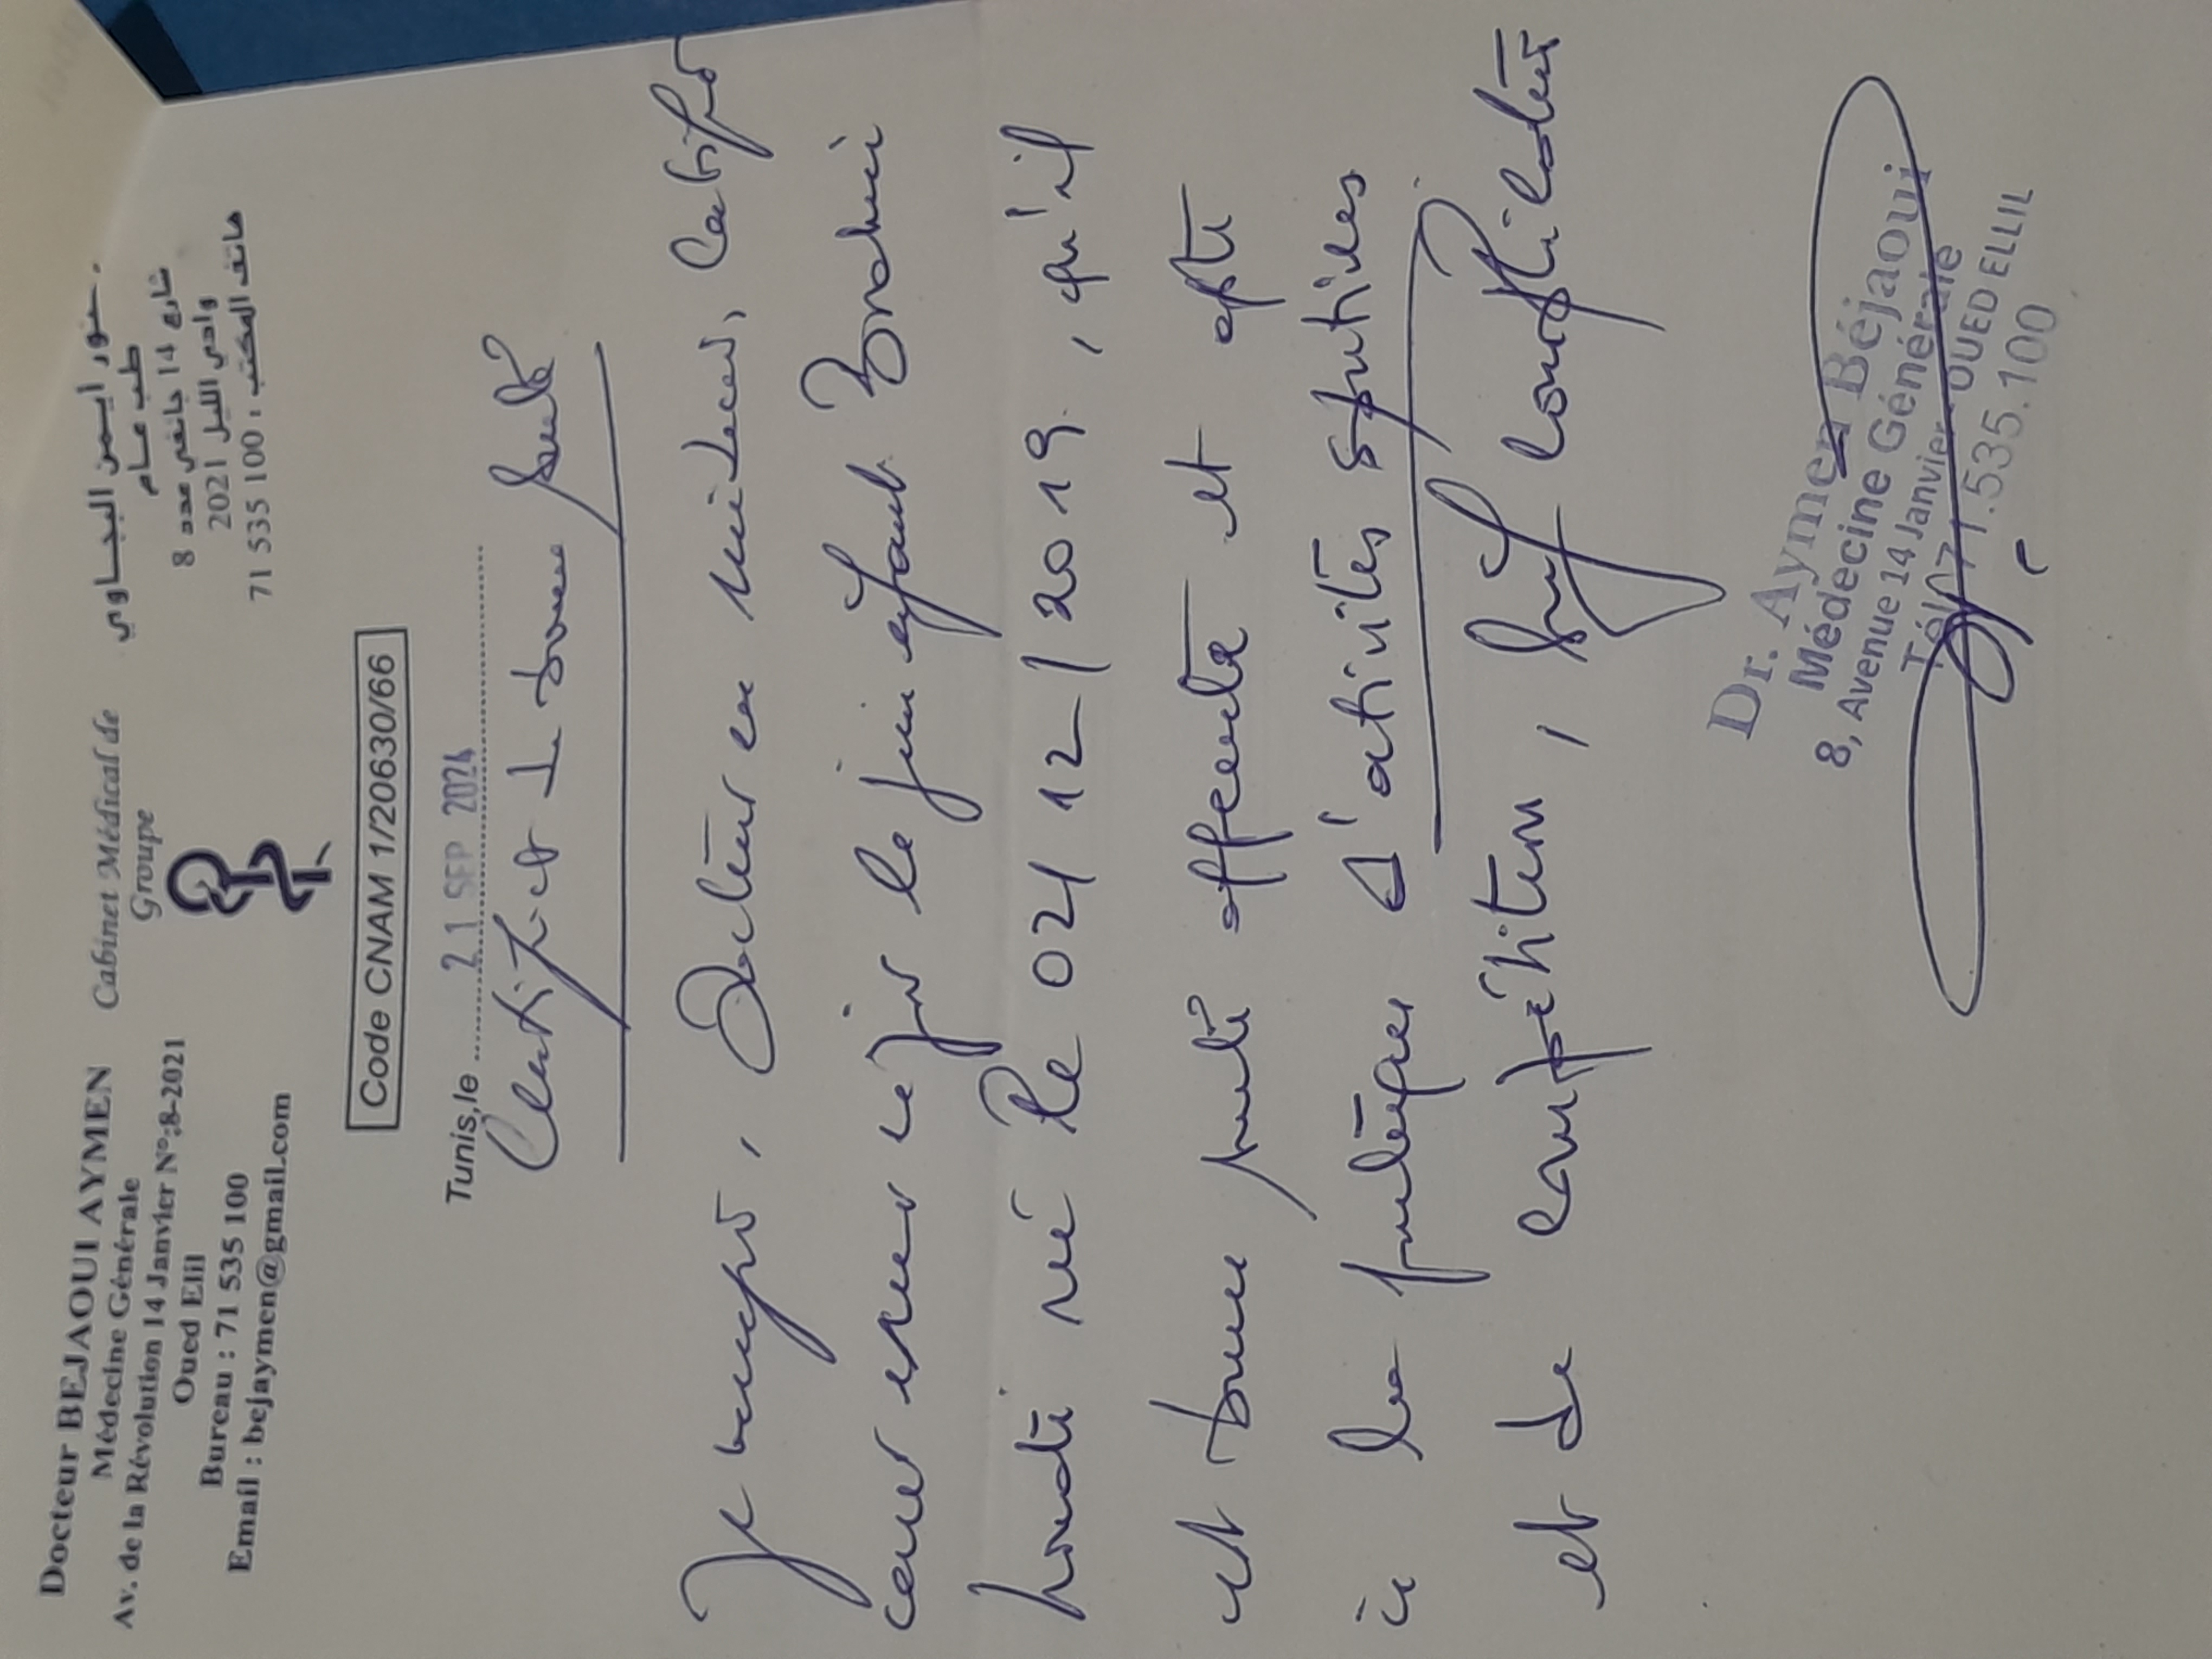 Docteur BEJAOUI AYMEN
Médecine Générale
Av. de la Révolution 14 Janvier N°:8-2021
Oued Elil
Bureau : 71 535 100
Email : bejaymen@gmail.com
Cabinet Médical de
Groupe
ايمن البجاوي
طب عام
شارع 14 جانفي عدد 8
وادي الليل 2021
هاتف المكتب : 100 535 71
Code CNAM 1/20630/66
Tunis,le 21 SEP 2024
Certificat de bonne santé
Je soussigné, Docteur en médecine, Certifie
avoir examiné ce jour le jeune enfant
né le 02/12/2019, qu'il
est bonne santé apparente et apte
à la pratique d'activités sportives
et de compétition, sauf complication
Dr. Aymen Béjaoui
Médecine Générale
8, Avenue 14 Janvier - OUED ELLIL
Tél : 71.535.100